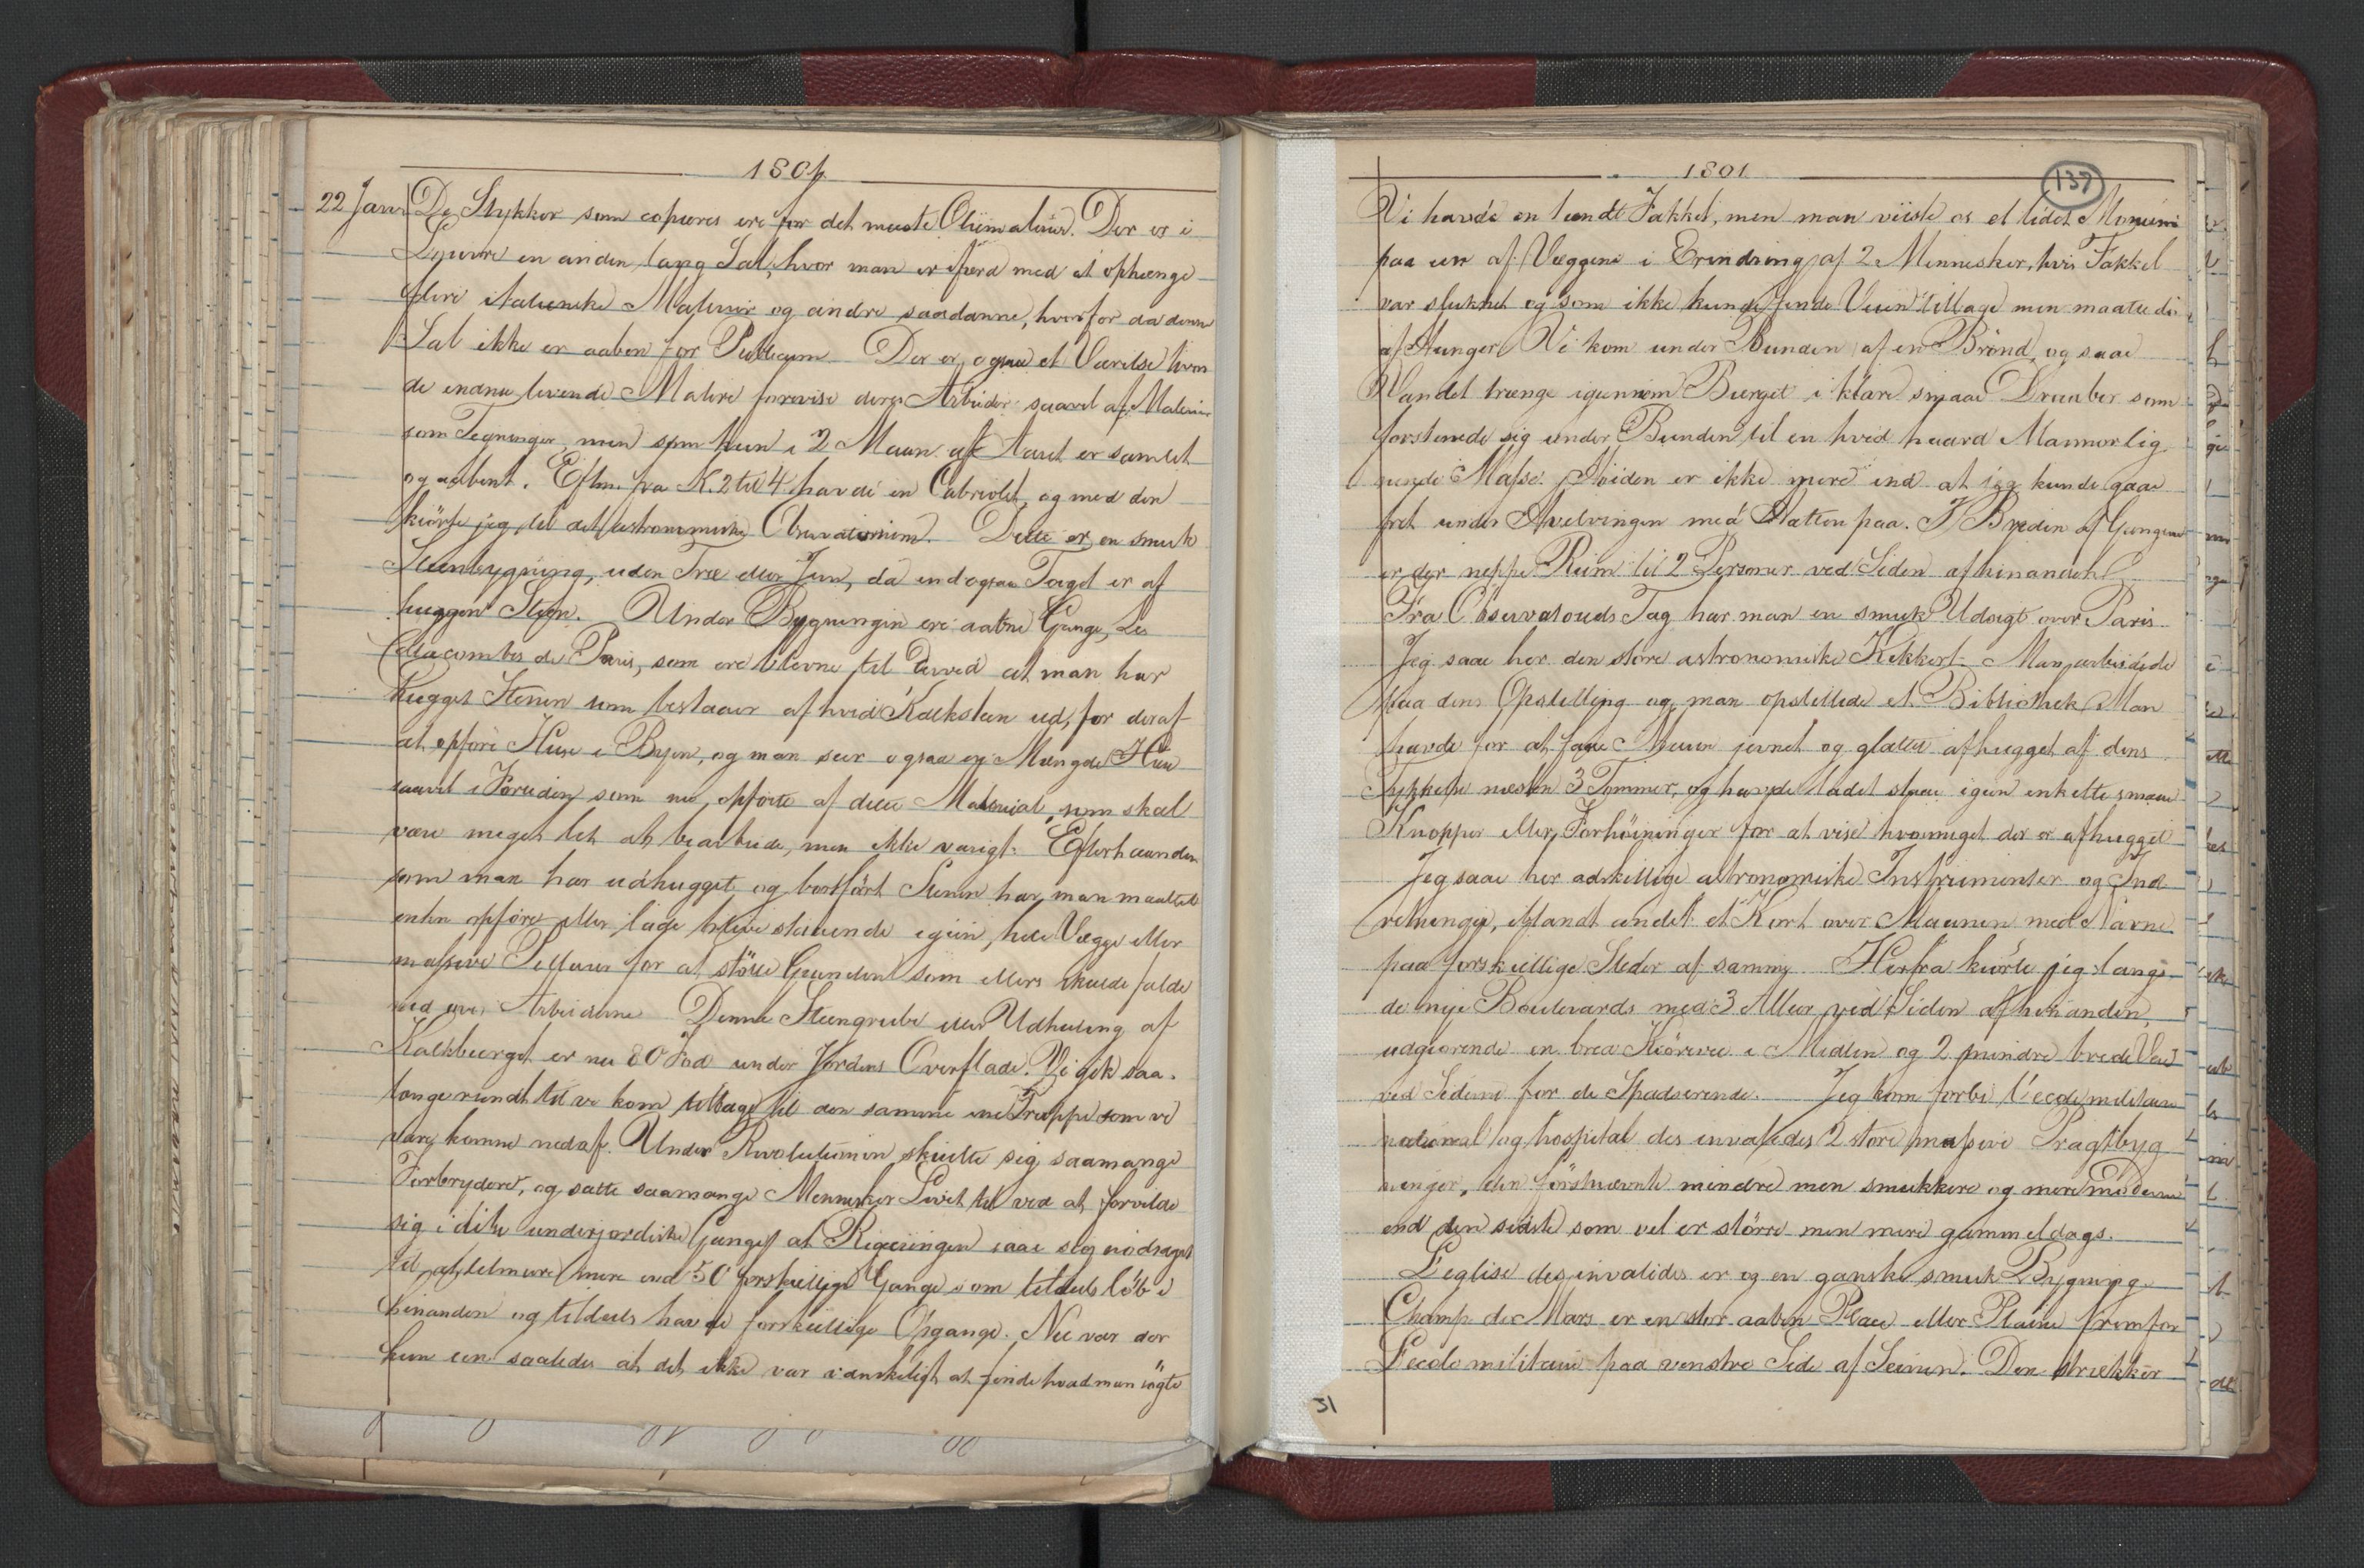 1801
22 Janr De Stykker som copieres ere for det meeste Oliemalerier. Der er i
Louvre en anden lang Sal, hvor man er ifærd med at ophænge
flere italienske Malerier og andre saadanne, hvorfor da denne
Sal ikke er aaben for Publicum Der er ogsaa et Værelse hvor
de endnu levende Malere forevise deres Arbeider saavel af Malerier
som Tegninger men som kun i 2 Maan. af Aaret er samlet
og aabent. Eftm. fra K. 2 til 4 havde en Cabriolet, og med den
kiörte jeg til det astronomiske Observatorium. Dette er en smuk
Steenbygning, uden Træ eller Jern, da endogsaa Taget er af
huggen Steen. Under Bygningen ere aabne Gange, Les
Catacombes de Paris, som ere blevne til derved at man har
hugget Stenen som bestaaer af hvid Kalksteen ud, for deraf
at opföre Huse i Byen, og man seer ogsaa en Mængde Huse
saavel i Foruden som nu, opförte af dette Material, som skal
være meget let at bearbeide, men ikke varigt. Efterhaanden
som man har udhugget og bortfört Stenen har man maattet
enten opföre eller lade blive staaende igien, hele Vægge eller
massive Pillarer for at stötte Grunden som ellers skulde falde
ned over Arbeiderne Denne Steengrube eller Udhuling af
Kalkbierget er nu 80 Fod under Jordens Overflade. Vi gik saa
længe rundt til vi kom tilbage til den samme ene Trappe som vi
vare komne ned af. Under Revolutionen skiulte sig saamange
Forbrydere, og satte saamange Mennesker Livet til ved at forvilde
sig i disse underjordiske Gange at Regieringen saae sig nödsaget
til at tilmure mere end 50 forskiellige Gange som tildeels löb i
hinanden og tildeels havde forskiellige Opgange. Nu var der
kun een saaledes at det ikke var vanskeligt at finde hvad man sögte
1801
137
Vi havde en tændt Fakkel, men man viiste os et lidet Monum
paa een af Væggene i Erindring af 2 Mennesker, hvis Fakkel
var slukket og som ikke kunde finde Veien tilbage men maatte döe
af Hunger Vi kom under Bunden af en Brönd, og saae
Vandet trænge igiennem Bierget i klare smaae Draaber som
forsteenede sig under Bunden til en hvid haard Marmorlig
nende Masse. Höiden er ikke mere end at jeg kunde gaae
fret under Hvelvingen med Hatten paa. I Breden af Gangene
er der neppe Rum til 2 Personer ved Siden af hinanden
Fra Observatoriets Tag har man en smuk Udsigt over Paris
Jeg saae her den store astronomiske Kikkert Man arbeidede
paa dens Opstilling og man opstillede et Bibliothek Man
havde for at faae Muren jevnet og glattet afhugget af dens
Tykkelse næsten 3 Tommer, og havde ladet staae igien enkelte smaae
Knopper eller Forhöininger for at vise hvormeget der er afhugget
Jeg saae her adskillige astronomiske Instrumenter og Ind
retninger, iblandt andet et Kort over Maanen med Navne
paa forskiellige Steder af samme Herfra kiörte jeg langs
de nye Boulevards med 3 Alleer ved Siden af hinanden,
udgiörende en bred Kiörevei i Midten og 2 mindre brede Veie
ved Siderne for de Spadserende. Jeg kom forbi l'ecole militaire
national og hospital des invalides 2 store massive Pragtbyg
ninger, den förstnævnte mindre men smukkere og mere moderne
end den sidste som vel er större men mere gammeldags.
L'eglise des invalides er og en ganske smuk Bygning
Champ de Mars er en stor aaben Plads eller Plaine fremfor
L'ecole militaire paa venstre Side af Seinen. Den strækker
31